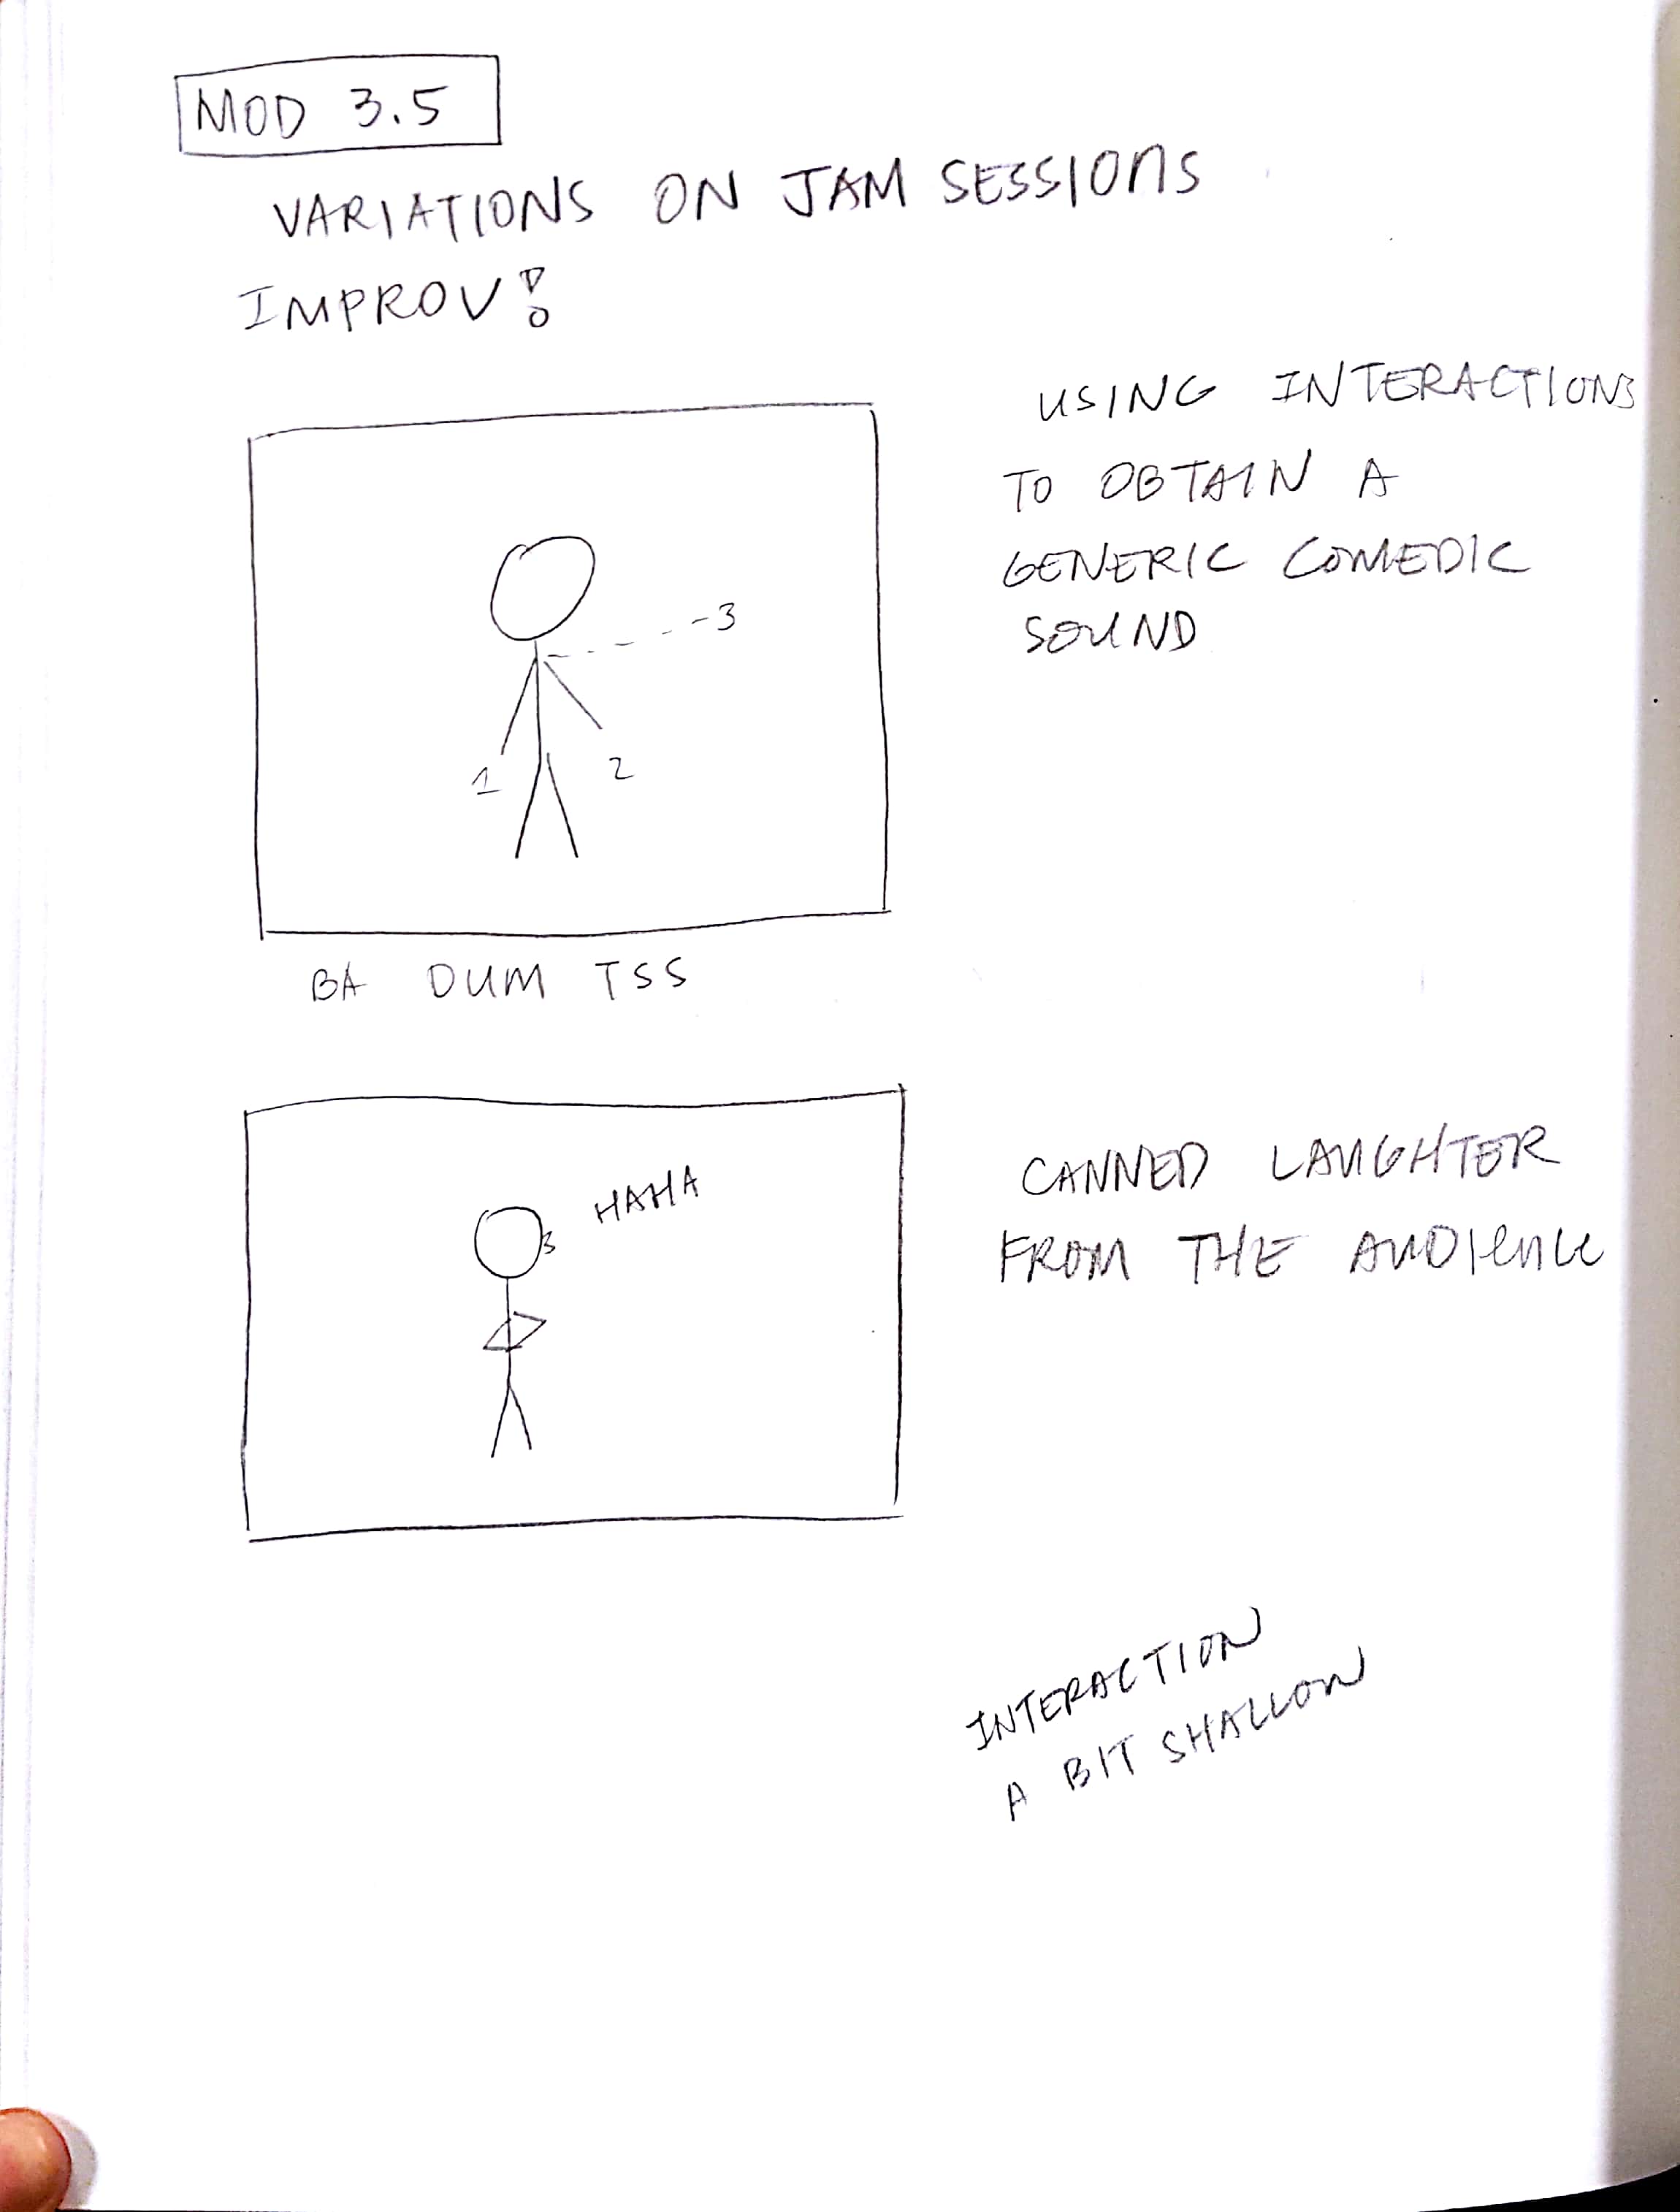 MOD 3.5
VARIATIONS ON JAM SESSIONS
IMPROV!
USING INTERACTIONS
TO OBTAIN A
GENERIC COMEDIC
SOUND
3
1
2
BA DUM TSS
HAHA
CANNED LAUGHTER
FROM THE AUDIENCE
INTERACTION
A BIT SHALLOW